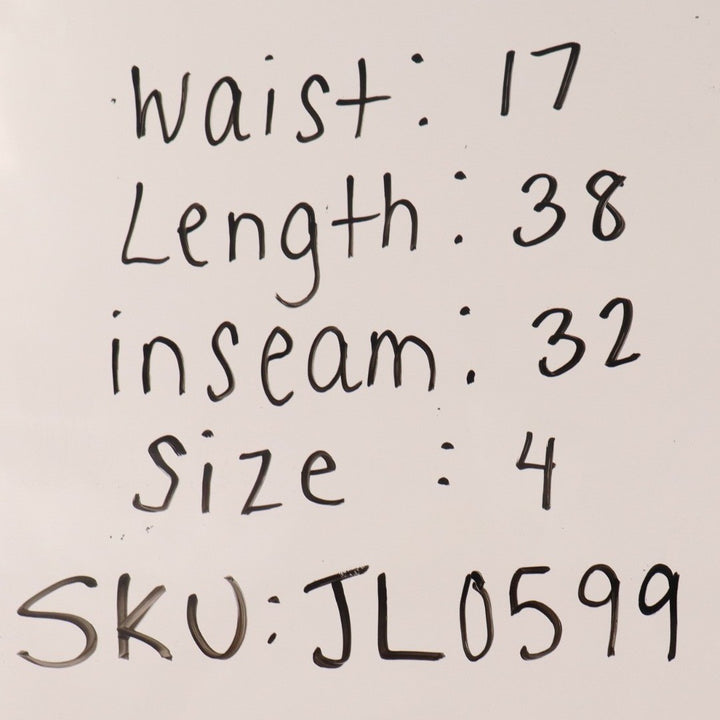 Waist: 17
Length: 38
inseam: 32
Size : 4
SKU: JL0599